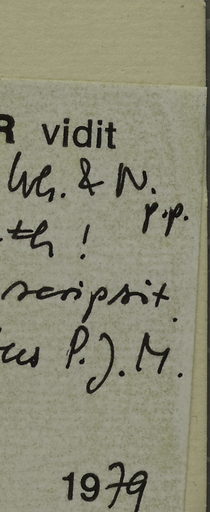 R vidit
Wh. & N.
p.p.
th !
scripsit
us P. J. M.
1979